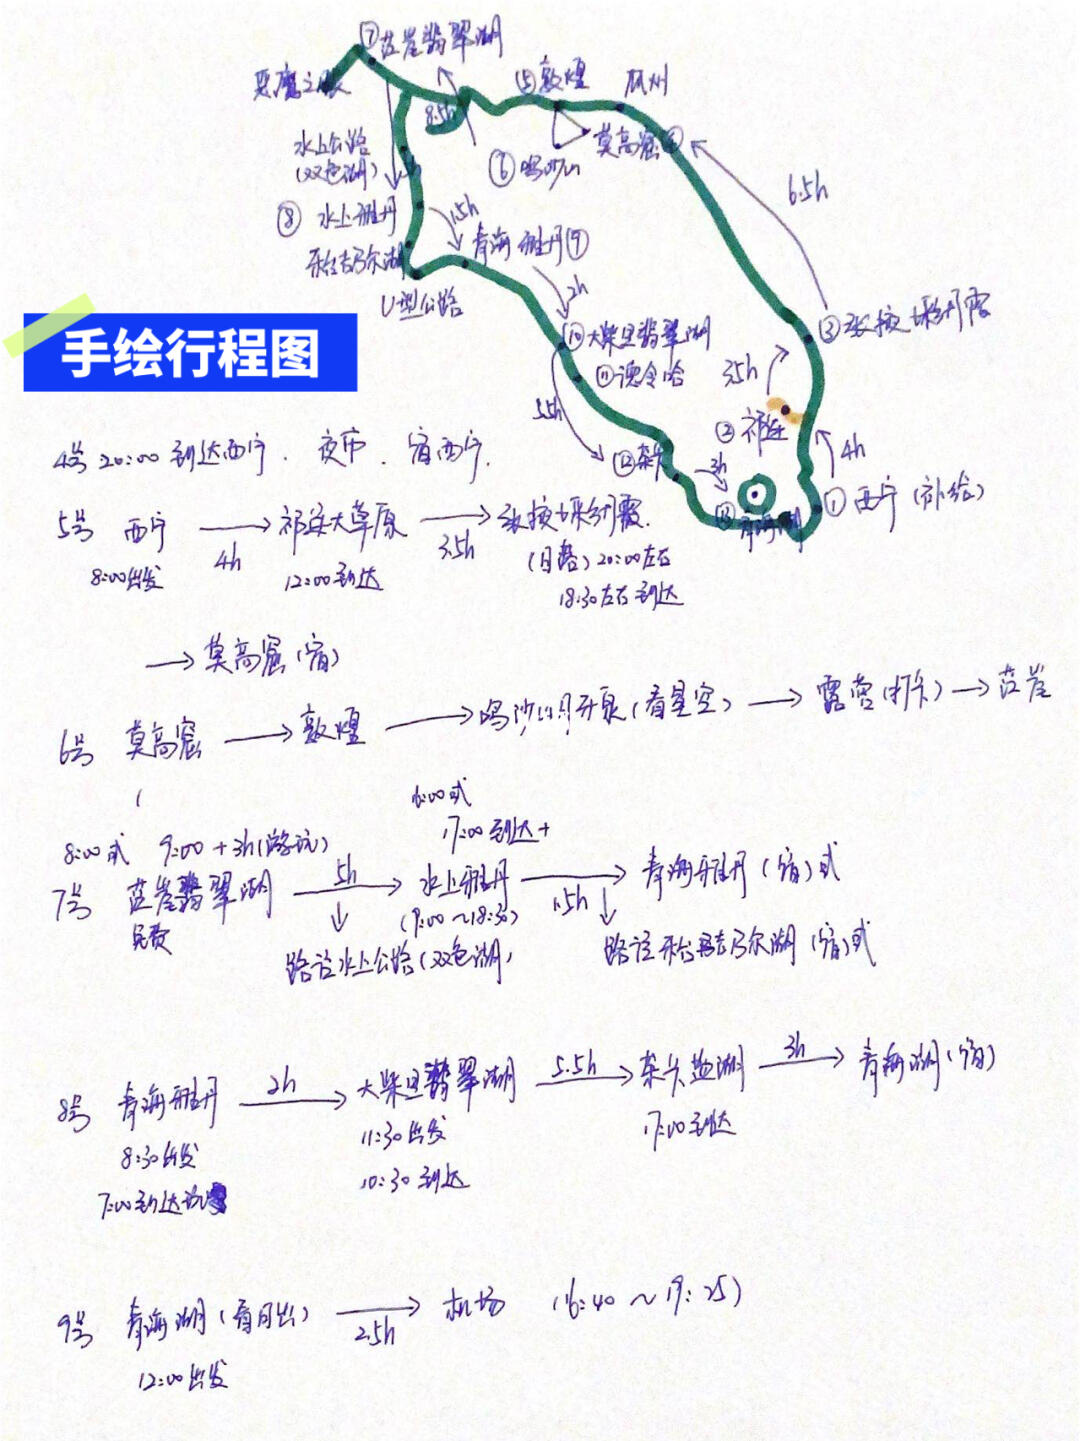 ⑦ 茫崖翡翠湖
恶魔之眼
⑤敦煌
瓜州
8.5h
水上公路
(双色湖)
⑥ 鸣沙山
莫高窟④
6.5h
⑧ 水上雅丹
1.5h
青海雅丹⑨
U型公路
2h
手绘行程图
⑩大柴旦翡翠湖
③张掖七彩丹霞
⑪德令哈
3.5h
5.5h
②祁连
4h
⑫茶卡
3h
①西宁(补给)
⑬青海湖
4号 20:00 到达西宁. 夜市. 宿西宁.
5号 西宁 → 祁连大草原 → 张掖七彩丹霞.
4h 3.5h
8:00出发 12:00到达 (日落)20:00左右
18:30左右到达
→ 莫高窟(宿)
6号 莫高窟 → 敦煌 → 鸣沙山月牙泉(看星空) → 露营(打卡) → 茫崖
16:00或
17:00到达+
8:00或 9:00+3h(游玩)
7号 茫崖翡翠湖 5h → 水上雅丹 1.5h → 青海雅丹(宿)或
免费 (9:00~18:30)
路过水上公路(双色湖)
路过 (宿)或
8号 青海雅丹 2h → 大柴旦翡翠湖 5.5h → 茶卡盐湖 3h → 青海湖(宿)
8:30出发 11:30出发 17:00到达
7:00到达 10:30到达
9号 青海湖(看日出) → 机场 (16:40~19:25)
2.5h
12:00出发